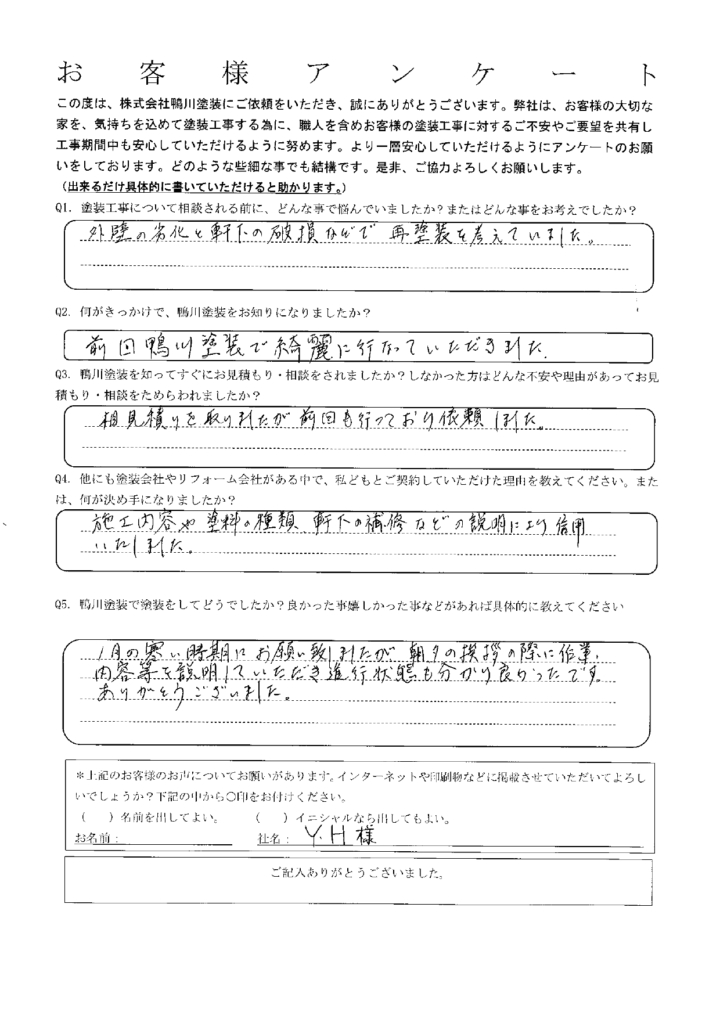 お客様アンケート
この度は、株式会社鴨川塗装にご依頼をいただき、誠にありがとうございます。弊社は、お客様の大切な
家を、気持ちを込めて塗装工事する為に、職人を含めお客様の塗装工事に対するご不安やご要望を共有し
工事期間中も安心していただけるように努めます。より一層安心していただけるようにアンケートのお願
いをしております。どのような些細な事でも結構です。是非、ご協力よろしくお願いします。
（出来るだけ具体的に書いていただけると助かります。）
Q1. 塗装工事について相談される前に、どんな事で悩んでいましたか？またはどんな事をお考えでしたか？
外壁の劣化と軒下の破損などで再塗装を考えていました。
Q2. 何がきっかけで、鴨川塗装をお知りになりましたか？
前回鴨川塗装で綺麗に行なっていただきました.
Q3. 鴨川塗装を知ってすぐにお見積もり・相談をされましたか？しなかった方はどんな不安や理由があってお見
積もり・相談をためらわれましたか？
相見積りを取りましたが前回も行っており依頼しました。
Q4. 他にも塗装会社やリフォーム会社がある中で、私どもとご契約していただけた理由を教えてください。また
は、何が決め手になりましたか？
施工内容や塗料の種類、軒下の補修などの説明により信用
いたしました。
Q5. 鴨川塗装で塗装をしてどうでしたか？良かった事嬉しかった事などがあれば具体的に教えてください
1月の寒い時期にお願い致しましたが朝夕の挨拶の際に作業
内容等を説明していただき進行状態も分かり良かったです。
ありがとうございました。
＊上記のお客様のお声についてお願いがあります。インターネットや印刷物などに掲載させていただいてよろし
いでしょうか？下記の中から〇印をお付けください。
（　）名前を出してよい。　（　）イニシャルなら出してもよい。
お名前：　社名：Y.H様
ご記入ありがとうございました。